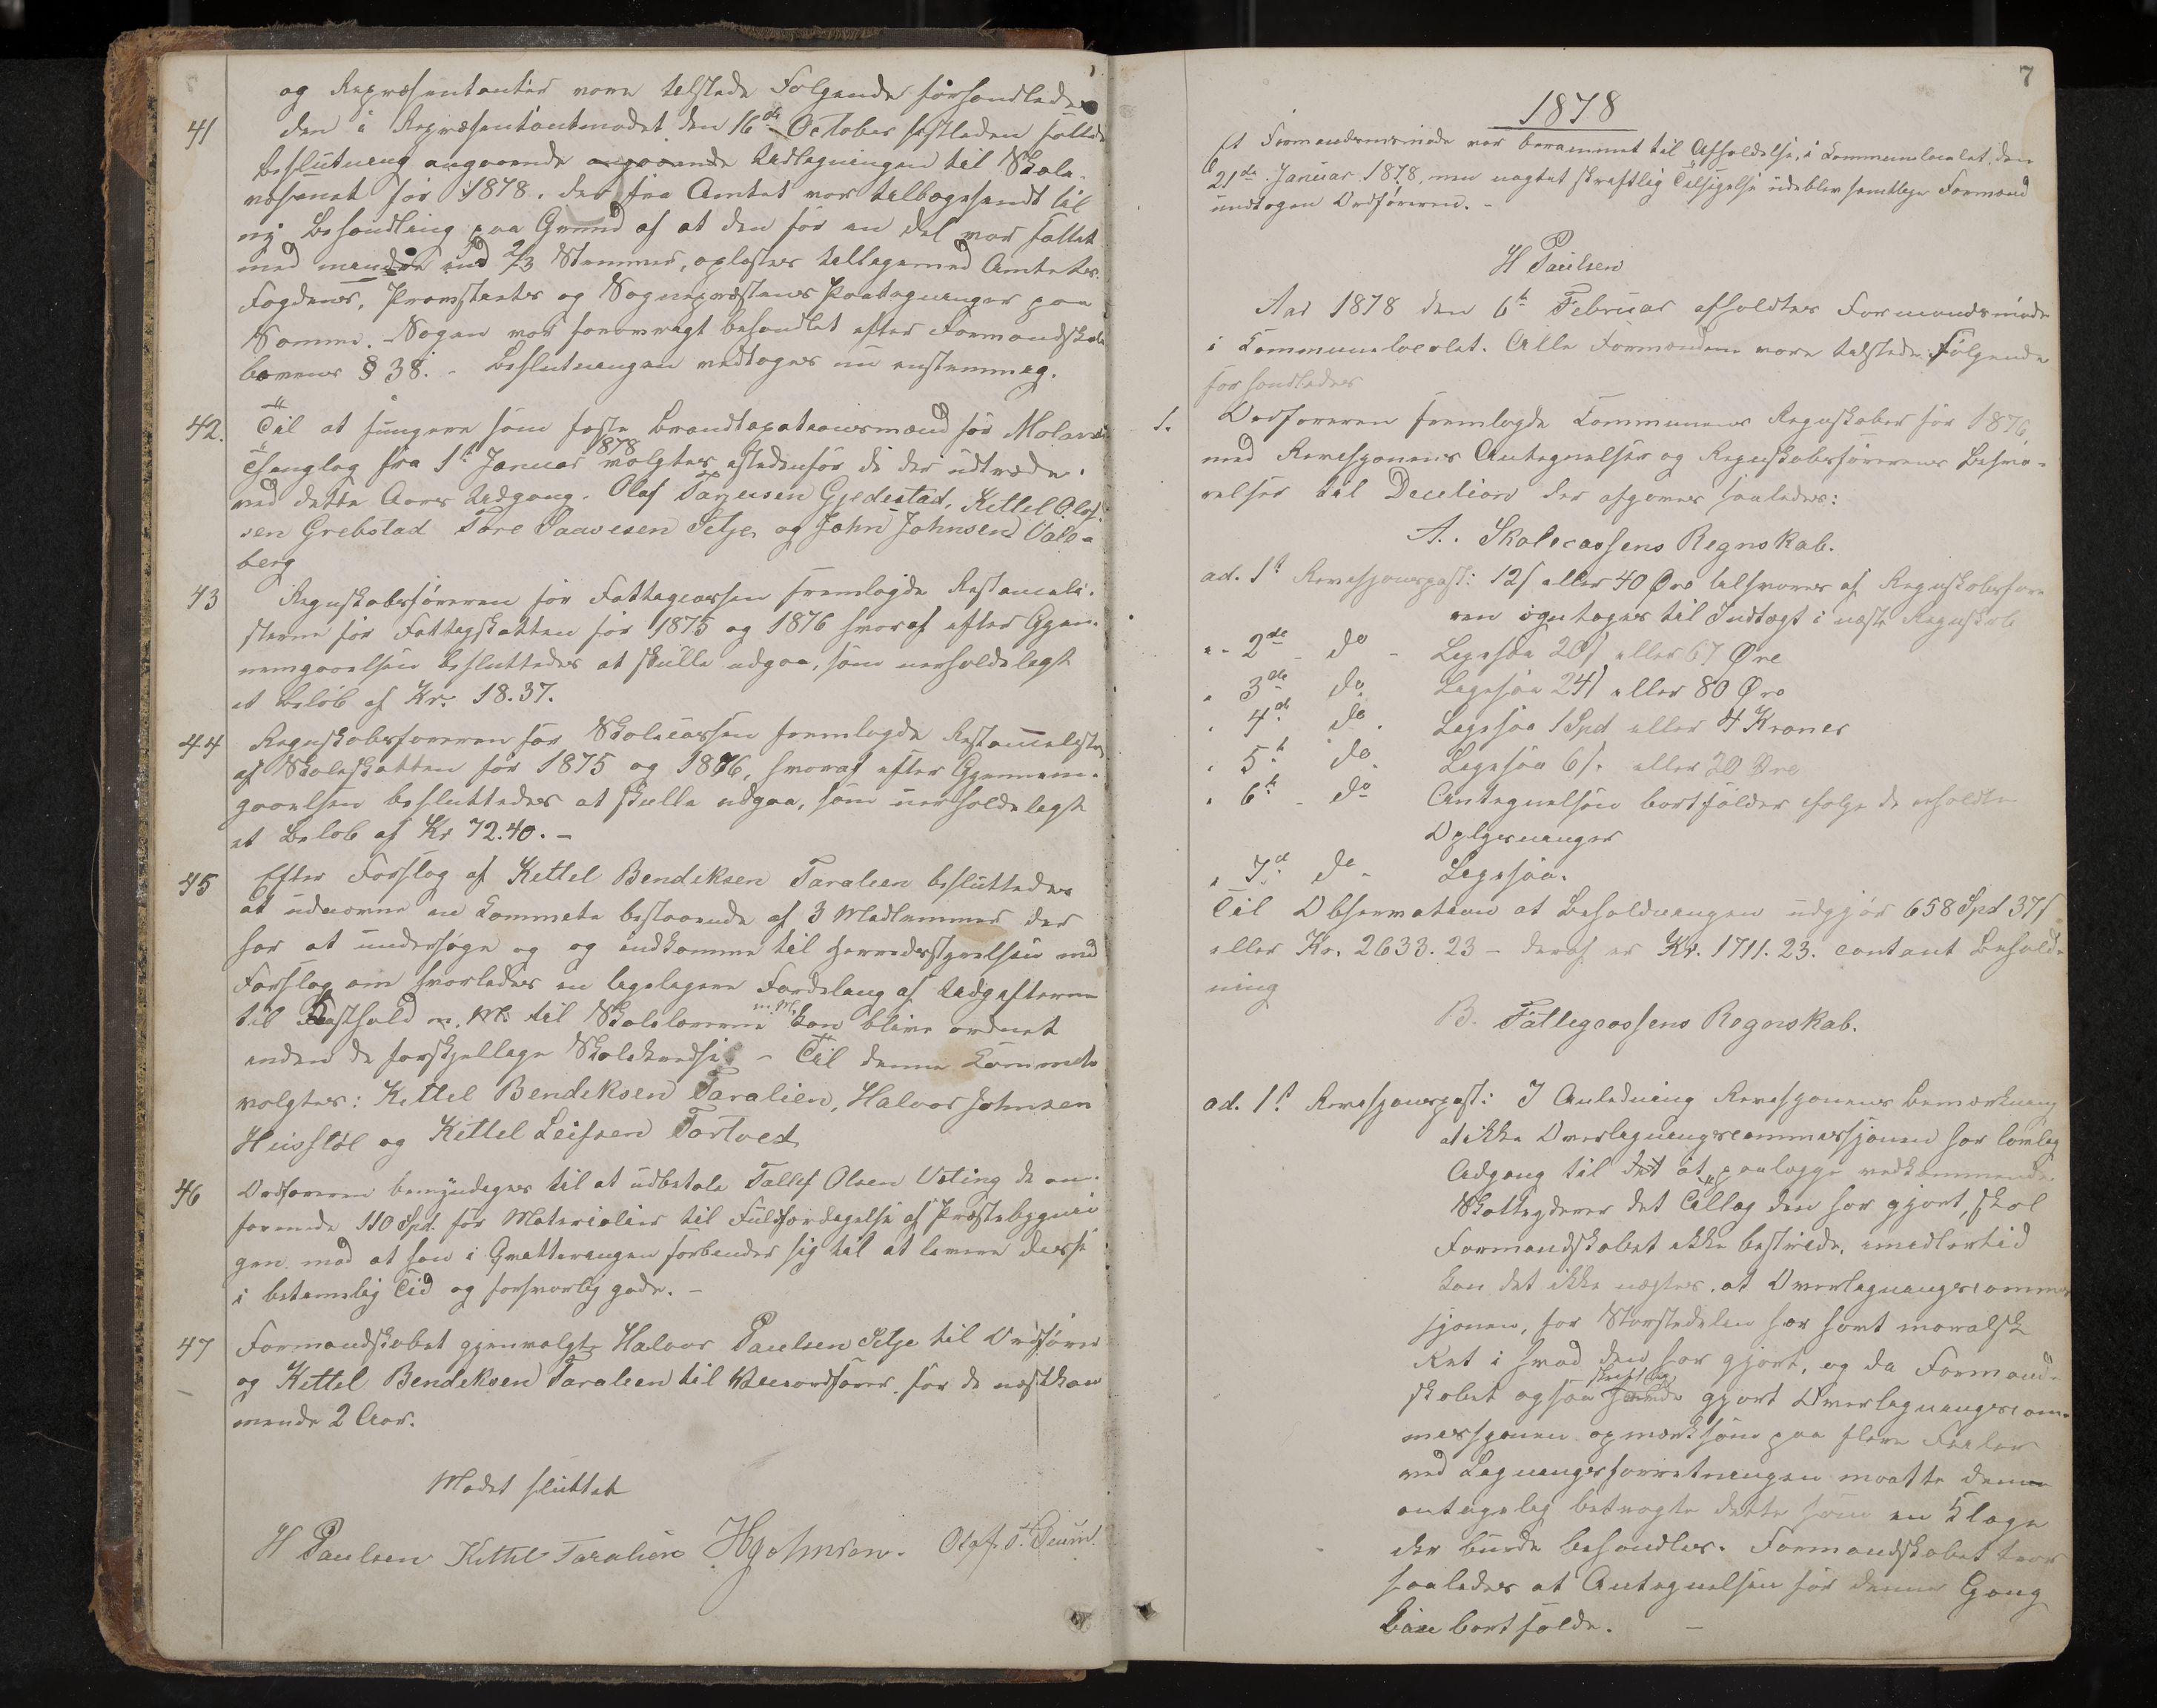 og Repræsentanter vare tilstede Følgende forhandledes
41 Den i Repræsentantmødet den 16de October sistleden fattede
Beslutning angaaende angaaende Udligningen til Skole-
væsenet for 1878. der fra Amtet var tilbagesendt til
ny Behandling paa Grund af at den for en Del var fattet
med mindre end 2/3 Stemmer, oplæstes tilligemed Amtets
Fogdens, Provstiets og Sognepræstens Paategninger paa
Samme. - Sagen var forøvrigt behandlet efter Formandskabs
lovens § 38. - Beslutningen vedtoges nu enstemmig.
42. Til at fungere som faste Brandtaxationsmænd for Molands
Thinglag fra 1ste Januar 1878 valgtes istedenfor de der udtræde
ved dette Aars Udgang. Olaf Tarjeisen Gjedestad, Kettel Olaf-
sen Grebstad Tore Paavesen Selje og John Johnsen Vale-
berg
43 Regnskabsføreren for Fattigcassen fremlagde Restanceli-
sterne for Fattigskatten for 1875 og 1876 hvoraf efter Gjen-
nemgaaelsen besluttedes at skulle udgaa, som uerholdeligt
et Beløb af Kr. 18.37.
44 Regnskabsføreren for Skolecassen fremlagde Restancelister
af Skoleskatten for 1875 og 1876, hvoraf efter Gjennem-
gaaelsen besluttedes at skulle udgaa, som uerholdeligt
et Beløb af Kr 72.40. -
45 Efter Forslag af Kettel Bendiksen Taralien besluttedes
at udnævne en Kommite bestaaende af 3 Medlemmer der
har at undersøge og og indkomme til Herredsstyrelsen med
Forslag om hvorledes en ligeligere Fordeling af Udgifterne
til Kosthold m. M. til Skolelærerne m. M. kan blive ordnet
inden de forskjellige Skolekredse. - Til denne Kommite
valgtes: Kettel Bendiksen Taralien, Halvor Johnsen
Husstøl og Kittel Leifsen Tortvet
46 Ordføreren bemyndiges til at udbetale Tallef Olsen Veting de an-
førende 110 Spd. for Materialier til Fuldfærdigelse af Præstebygnin
gen. mod at han i Qvitteringen forbinder sig til at levere disse
i betimelig Tid og forsvarlig gode. -
47 Formandskabet gjenvalgte Halvor Paulsen Selje til Ordfører
og Kettel Bendiksen Taralien til Viceordfører for de næstkom
mende 2 Aar.
Mødet sluttet
H Paulsen Kittel Taralien HJohnsen. Olaf T.
7
1878
Et Formandsmøde var berammet til Afholdelse i Kommunelocalet den
21de Januar 1878, men uagtet skriftlig Tilsigelse udeblev samtlige Formænd
undtagen Ordføreren. -
H Paulsen
Aar 1878 den 6te Februar afholdtes Formandsmøde
i Kommunelocalet. Alle Formænden vare tilstede. Følgende
forhandledes
1. Ordføreren fremlagde Kommunens Regnskaber for 1876,
med Revisjonens Antegnelser og Regnskabsførerens Besva-
relser til Decision der afgaves saaledes:
A. Skolecassens Regnskab.
ad. 1ste Revisjonspost: 12 s eller 40 Øre tilsvares af Regnskabsføre
ren og tages til Indtægt i næste Regnskab
" - 2de - do - Ligesaa 20 s eller 67 Øre
" 3die do Ligesaa 24 s eller 80 Øre
" 4de do. Ligesaa 1 Spd eller 4 Kroner
" 5te do. Ligesaa 6 s. eller 20 Øre
" 6te - do Antegnelsen bortfalder ifølge de erholdte
Oplysninger
" 7de do - Ligesaa.
Til Observation at Beholdningen udgjør 658 Spd 37 s
eller Kr. 2633.23 - deraf er Kr. 1711.23. contant Behold-
ning
B. Fattigcassens Regnskab.
ad. 1ste Revisjonspost: I Anledning Revisjonens Bemærkning
at ikke Overligningscommissjonen har lovlig
Adgang til det at paalægge vedkommende
Skatteydere det Tillæg den har gjort, skal
Formandskabet ikke bestride, imidlertid
kan det ikke nægtes, at Overligningscommis
sjonen, for Størstedelen har havt moralsk
Ret i hvad den har gjort, og da Formand-
skabet ogsaa skriftlig havde gjort Overligningscom-
missjonen opmærksom paa flere Feiler
ved Ligningsforretningen maatte denne
antagelig betragte dette som en Klage
der burde behandles. Formandskabet tror
saaledes at Antegnelsen for denne Gang
kan bortfalde. -